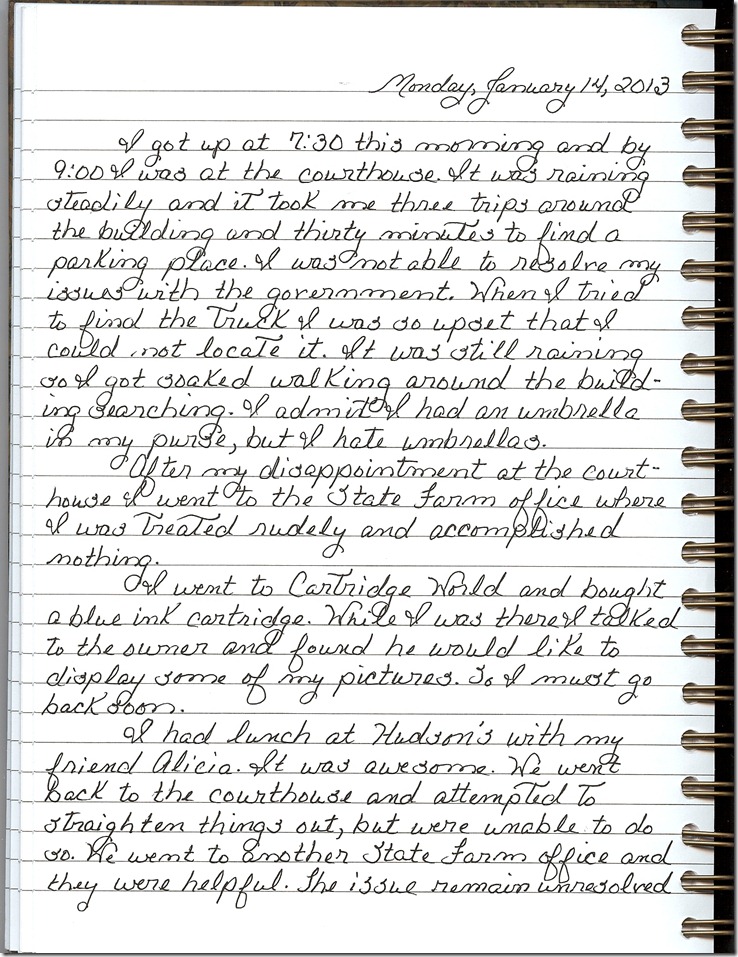 Monday, January 14, 2013
I got up at 7:30 this morning and by
9:00 I was at the courthouse. It was raining
steadily and it took me three trips around
the building and thirty minutes to find a
parking place. I was not able to resolve my
issues with the government. When I tried
to find the truck I was so upset that I
could not locate it. It was still raining
so I got soaked walking around the build-
ing searching. I admit I had an umbrella
in my purse, but I hate umbrellas.
After my disappointment at the court-
house I went to the State Farm office where
I was treated rudely and accomplished
nothing.
I went to Cartridge World and bought
a blue ink cartridge. While I was there I talked
to the owner and found he would like to
display some of my pictures. So I must go
back soon.
I had lunch at Hudson's with my
friend Alicia. It was awesome. We went
back to the courthouse and attempted to
straighten things out, but were unable to do
so. We went to another State Farm office and
they were helpful. The issue remain unresolved